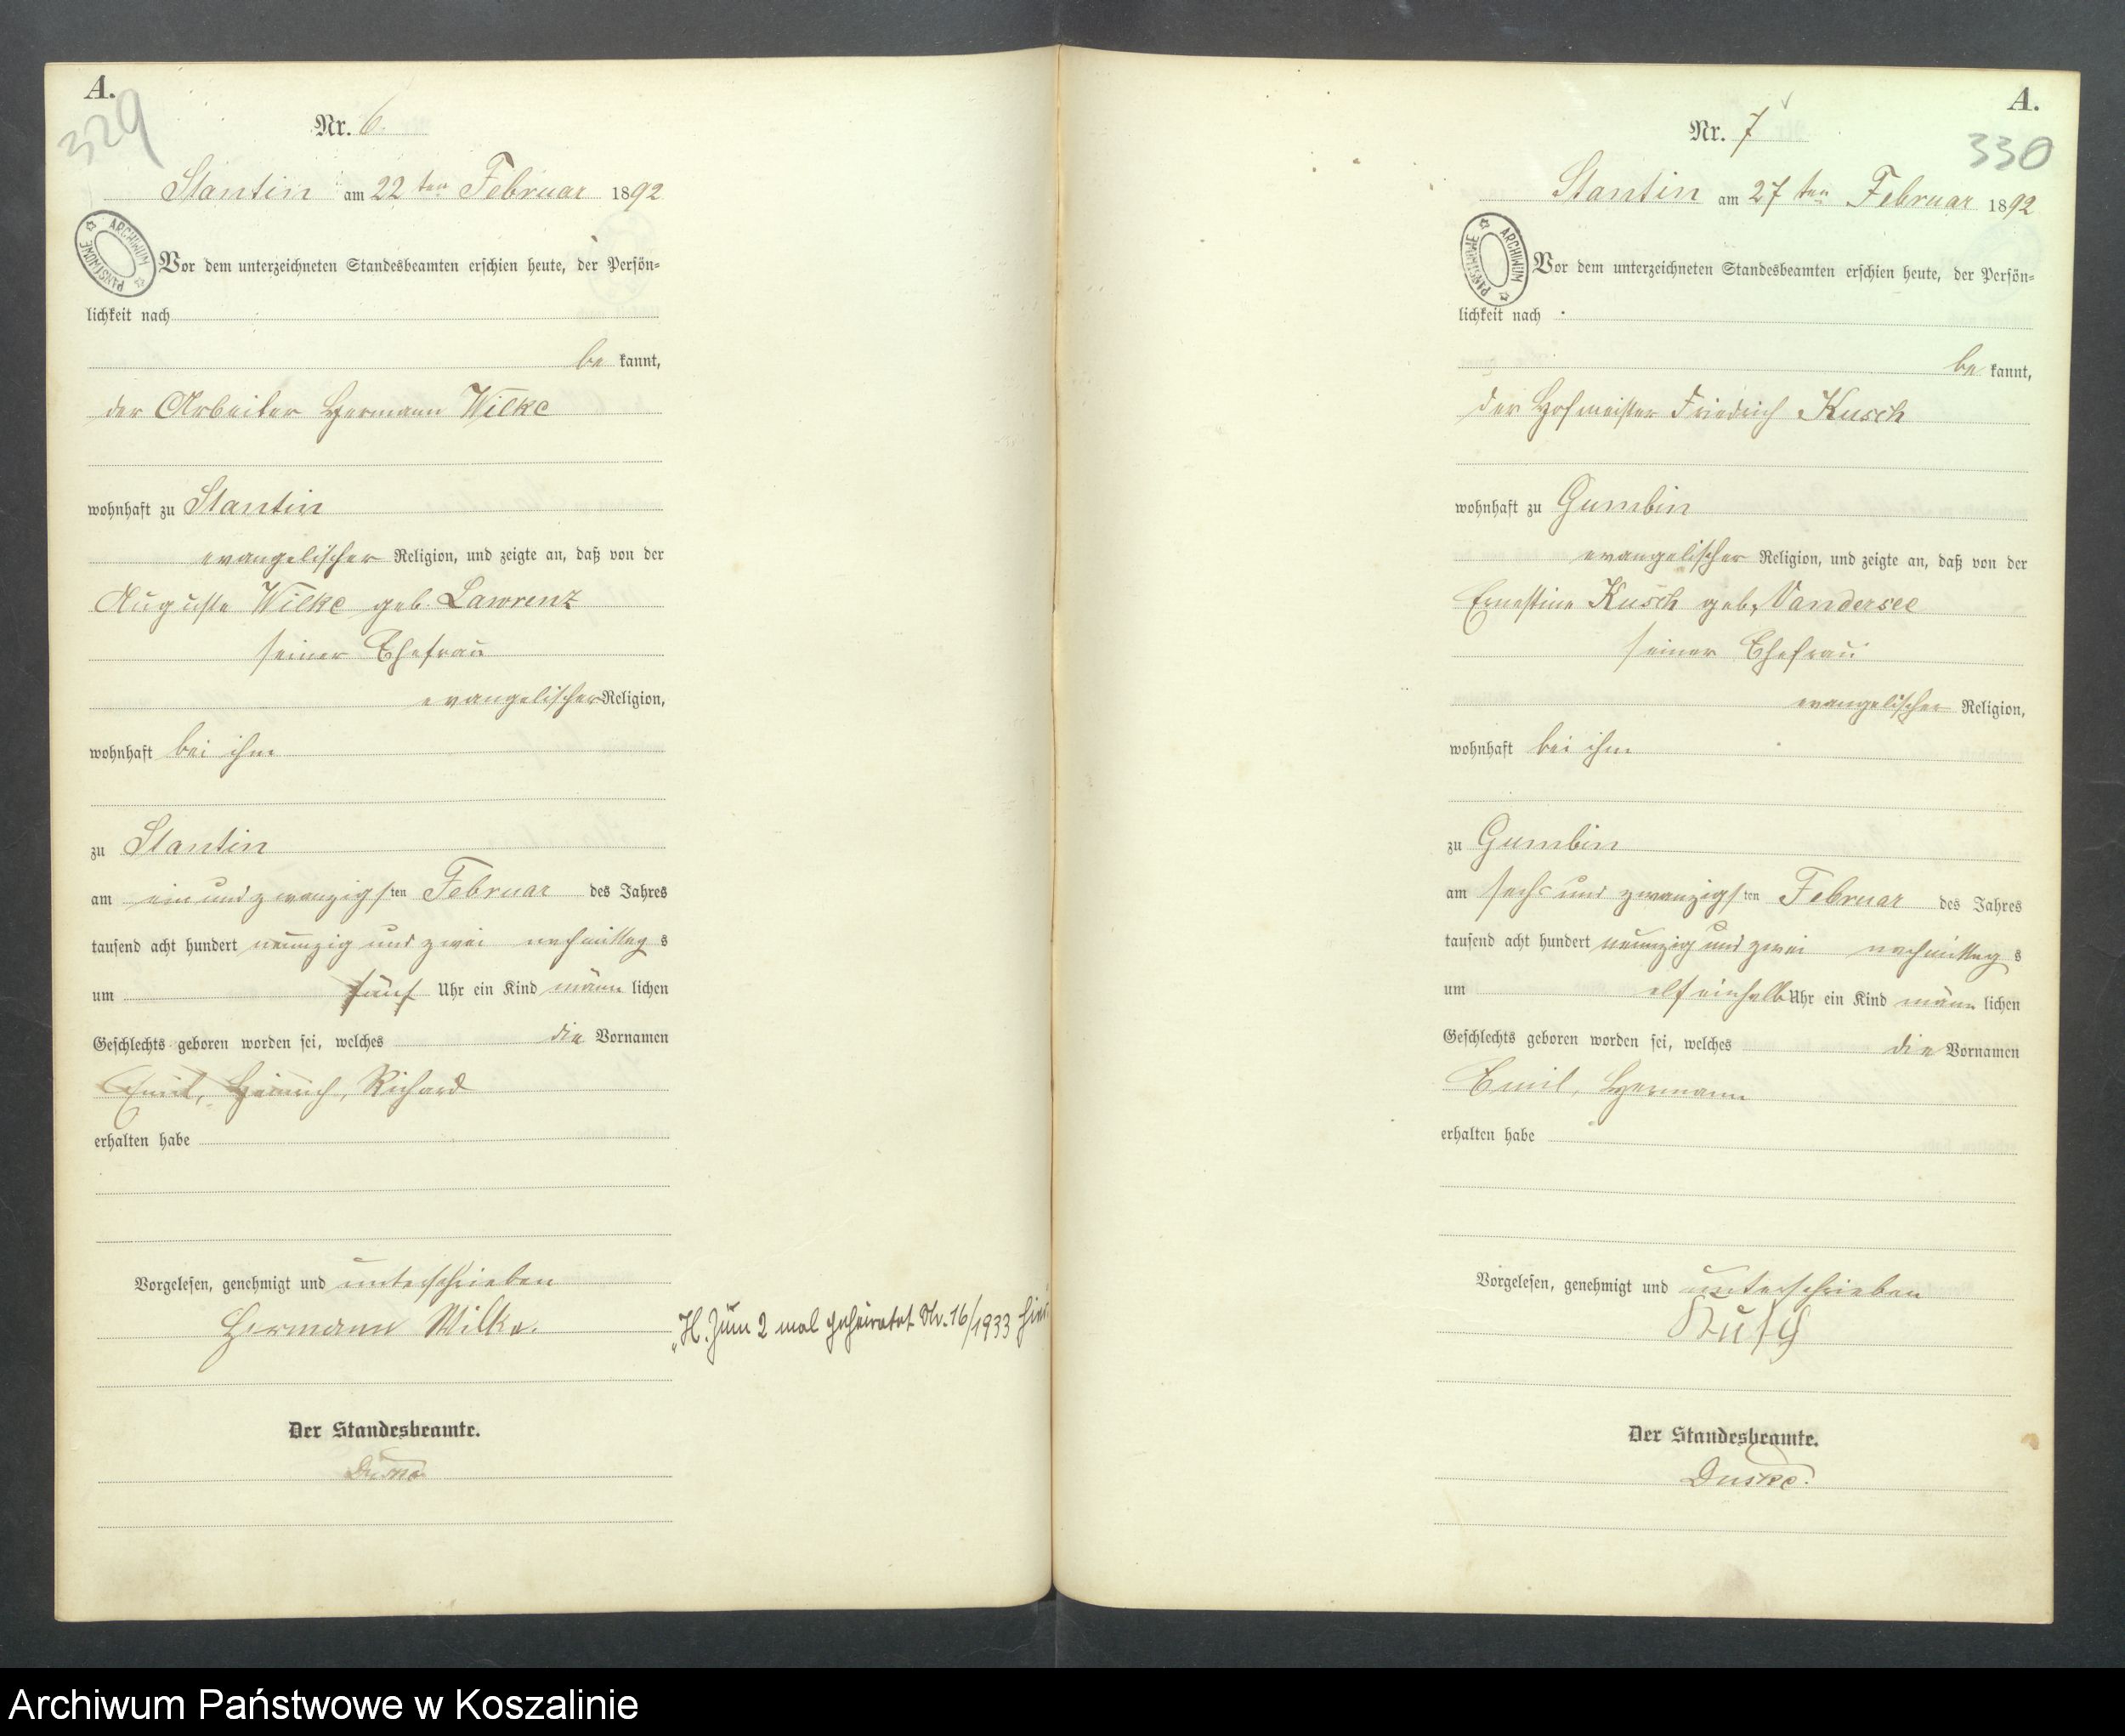 A.
329
Nr. 6.
Stantin am 22ten Februar 1892
ARCHIWUM PAŃSTWOWE
Vor dem unterzeichneten Standesbeamten erschien heute, der Persön-
lichkeit nach
be kannt,
der Arbeiter Hermann Wilke
wohnhaft zu Stantin
evangelischer Religion, und zeigte an, daß von der
Auguste Wilke geb. Lawrenz
seiner Ehefrau
evangelischer Religion,
wohnhaft bei ihm
zu Stantin
am ein und zwanzigsten Februar des Jahres
tausend acht hundert neunzig und zwei nachmittags
um fünf Uhr ein Kind männlichen
Geschlechts geboren worden sei, welches die Vornamen
Emil, Heinrich, Richard
erhalten habe
Vorgelesen, genehmigt und unterschrieben
Hermann Wilke.
"H. Zum 2 mal geheiratet Nr. 16/1933 hier."
Der Standesbeamte.
A.
330
Nr. 7
Stantin am 27ten Februar 1892
ARCHIWUM PAŃSTWOWE
Vor dem unterzeichneten Standesbeamten erschien heute, der Persön-
lichkeit nach
be kannt,
der Hofmeister Friedrich Kusch
wohnhaft zu Gumbin
evangelischer Religion, und zeigte an, daß von der
Ernestine Kusch geb. Vandersee
seiner Ehefrau
evangelischer Religion,
wohnhaft bei ihm
zu Gumbin
am sechs und zwanzigsten Februar des Jahres
tausend acht hundert neunzig und zwei nachmittags
um elf einhalb Uhr ein Kind männlichen
Geschlechts geboren worden sei, welches die Vornamen
Emil, Hermann
erhalten habe
Vorgelesen, genehmigt und unterschrieben
Kusch
Der Standesbeamte.
Duske.
Archiwum Państwowe w Koszalinie